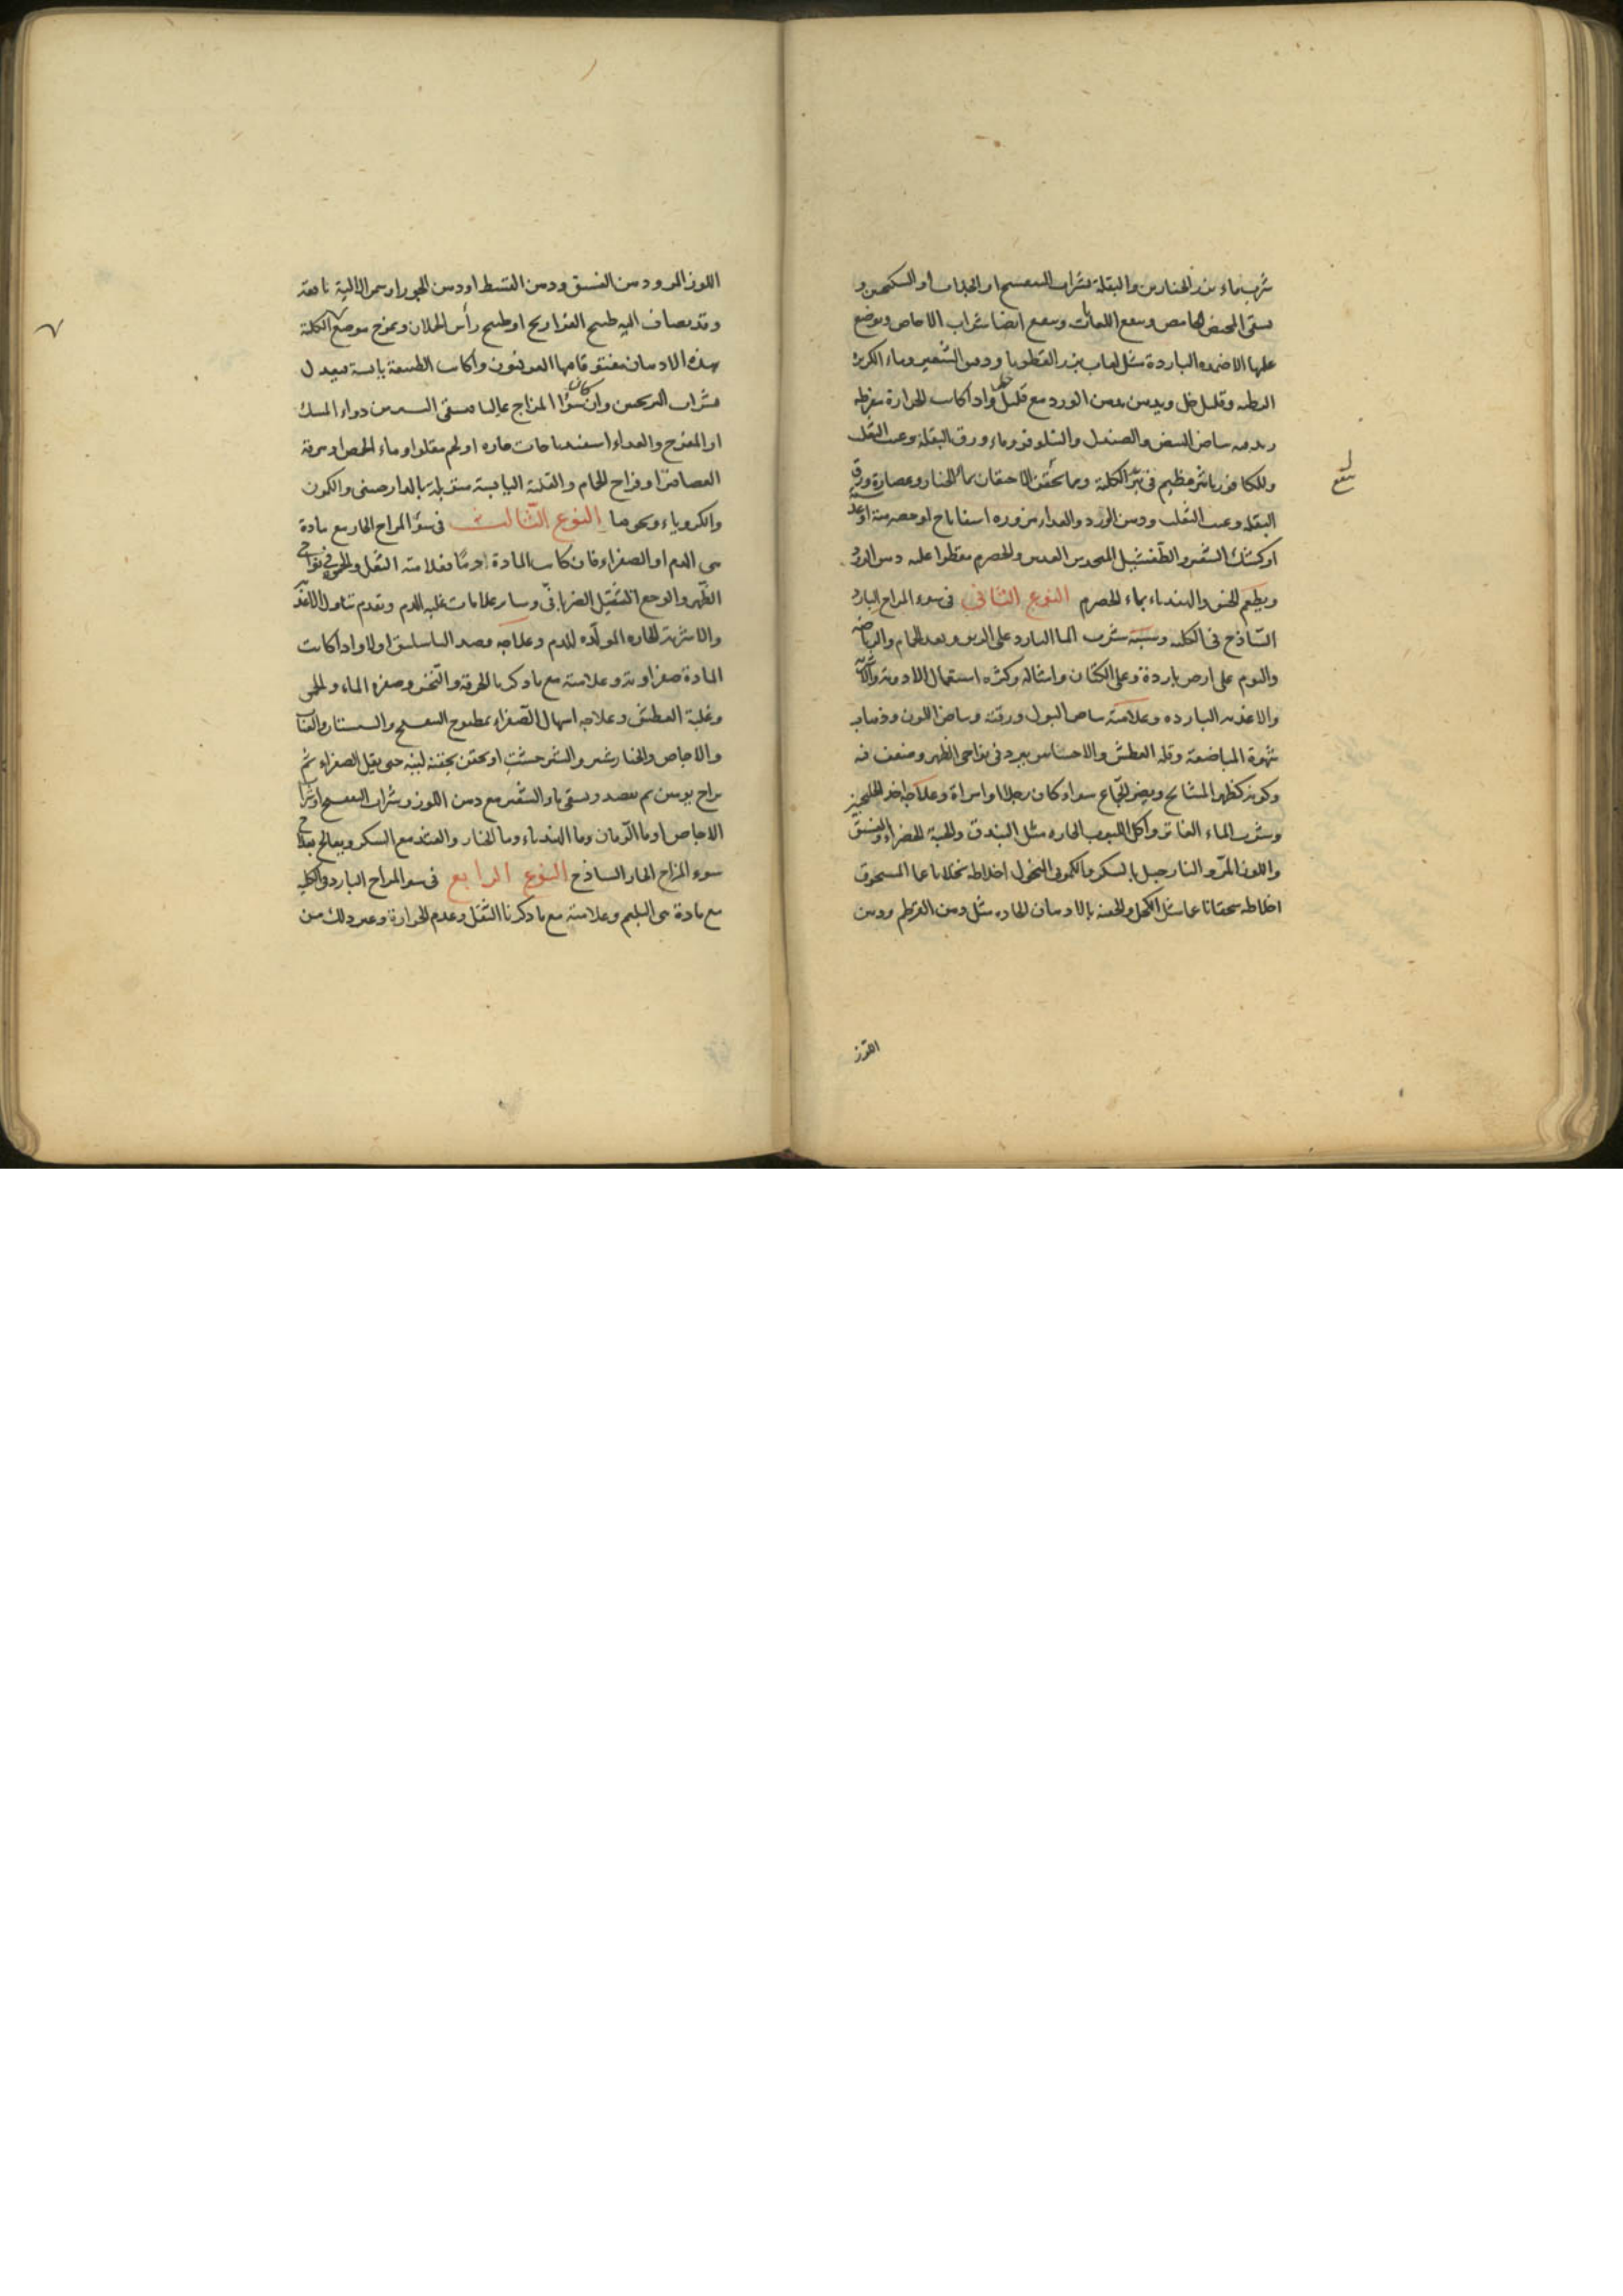 شرب ماء بزر الخيارين والبقلة بشراب البنفسج او الجلاب او السكنجبين و
يسقى المخيض الحامض وينفع اللعابات وينفع ايضا شراب الاجاص ويوضع
عليها الاضمده الباردة مثل لعاب بزر القطونا ودقيق الشعير وماء الكزبرة
الرطبه وقليل خل ويدهن بدهن الورد مع قليل خل واذا كانت الحرارة مفرطه
بياض البيض والصندل والنيلوفر وماء ورق البقلة وعنب الثعلب
وللكافور تاثير عظيم فى تبريد الكلية ومما يحقن الاحتقان بماء الخيار وعصارة ورق
البقله وعنب الثعلب ودهن الورد والغذاء مزوره اسفاناخ او حصرمية او عدسية
او كشك الشعير والطفشيل المتخذ من العدس والحصرم مقطرا عليه دهن اللوز
ويطعم الخس والهندباء بماء الحصرم النوع الثانى فى سوء المزاج البارد
الساذج فى الكليه وسببه شرب الماء البارد على الريق وبعد الحمام والرياضه
والنوم على ارض باردة وعلى الكتان وامثاله وكثره استعمال الادوية والاشربة
والاغذيه البارده وعلامته بياض البول ورقته وبياض اللون وذهاب
شهوة المباضعة وقله العطش والاحساس ببرد فى نواحى الظهر وضعف فيه
وكونه كظهر المشايخ ويضر الجماع سواء كان رجلا او امراة وعلاجه اخذ الخلنجبين
وشرب الماء الفاتر واكل الحبوب الحاره مثل البندق والحبة الخضراء والفستق
واللوز المر والنارجيل بالسكر والكمونى المنخول اخلاطه نخلا ناعما المسحوق
اخلاطه سحقا ناعما مثل الكحل والحقنه بالادهان الحاده مثل دهن القرطم ودهن
اللوز
ينفع
اللوز المر ودهن الفستق ودهن القسط او دهن الجوز او سمن الالية نافعة
وقد يضاف اليه طبيخ الفراريج او طبيخ رأس الحملان ويمرخ موضع الكلية
بهذه الادهان مفتوقا فيها الفربيون واذا كانت الطبيعة يابسة فيعدل
بشراب الترنجبين وان كان سوء المزاج غالبا فيسقى اليسير من دواء المسك
او المفرح والغداء اسفيدباجات حاره او لحم مقلو او ماء الحمص او مرقة
العصافير او فراخ الحمام والقلية اليابسة متوبلة بالدارصينى والكمون
والكروياء ونحوها النوع الثالث فى سوء المزاج الحار مع مادة
من الدم او الصفراء فان كانت المادة دما فعلامته الثقل والحمرة فى نواحى
الظهر والوجع الثقيل الضربانى وساير علامات غلبه الدم وتقدم تناول الاغذية
والاشربة الحاره المولده للدم وعلاجه فصد الباسليق اولا واذا كانت
المادة صفراوية وعلامته مع ما ذكرنا الحرقة والنخس وصفره الماء والحمى
وغلبة العطش وعلاجه اسهال الصفراء بمطبوخ البنفسج والسبستان والعناب
والاجاص والخيارشنبر والشيرخشت او يحقن بحقنة لينه حتى يقل الصفراء ثم
يراح يومين ثم يفصد ويسقى ماء الشعير مع دهن اللوز وشراب البنفسج او شراب
الاجاص او ماء الرمان وماء الهندباء وماء الخيار والقثد مع السكر ويعالج بعلاج
سوء المزاج الحار الساذج النوع الرابع فى سوء المزاج البارد فى الكلية
مع مادة من البلغم وعلامته مع ما ذكرنا الثقل وعدم الحرارة وغير ذلك من